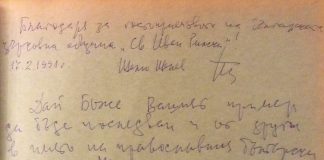 Благодаря за гостоприемството на Българската
църковна община „Св Иван Рилски“
17.2.1991г.
Дай Боже Вашият пример
да бъде последван и от други
в името на православния български